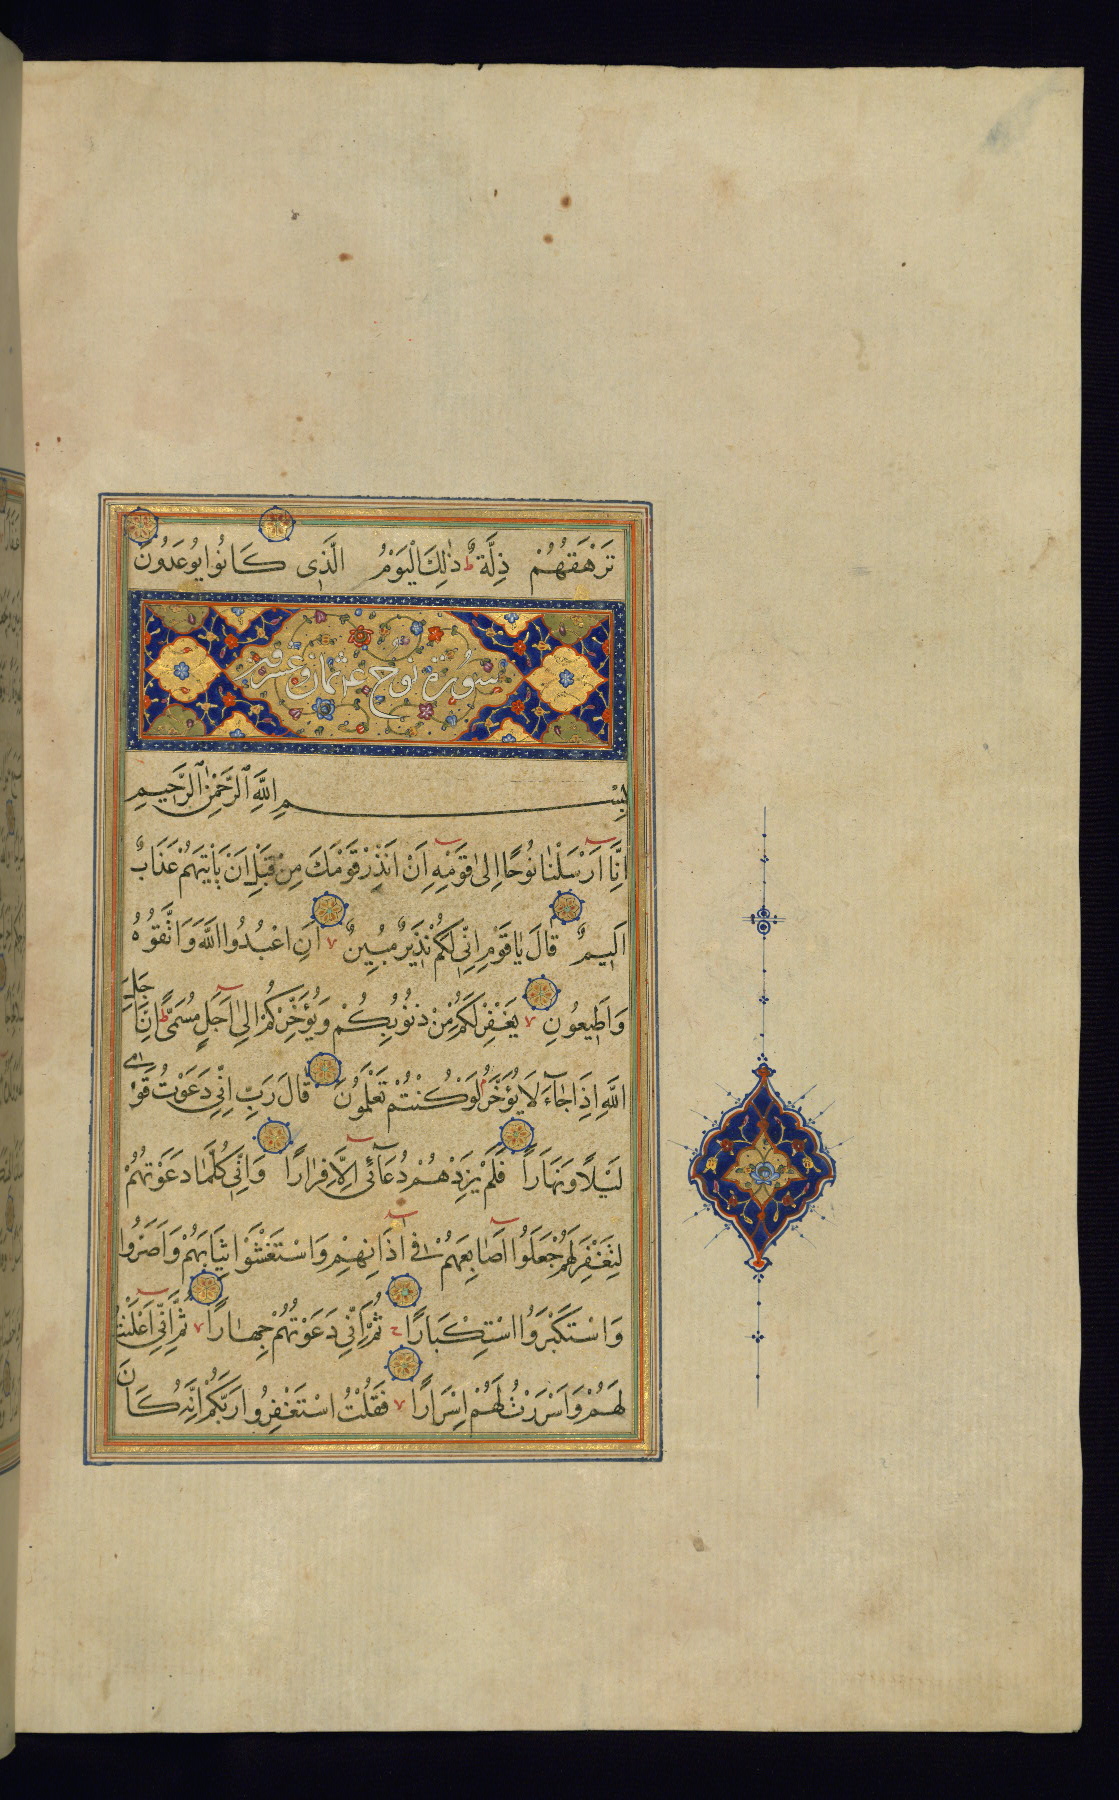 تَرْهَقُهُمْ ذِلَّةٌ ط ذٰلِكَ الْيَوْمُ الَّذِى كَانُوا يُوعَدُونَ
سُورَة نُوح ع ثمان وعشرون
بِسْمِ اللَّهِ الرَّحْمٰنِ الرَّحِيمِ
اِنَّا اَرْسَلْنَا نُوحًا اِلىٰ قَوْمِهِ اَنْ اَنْذِرْ قَوْمَكَ مِنْ قَبْلِ اَنْ يَاْتِيَهُمْ عَذَابٌ
اَلِيمٌ قَالَ يَا قَوْمِ اِنِّى لَكُمْ نَذِيرٌ مُبِينٌ لا اَنِ اعْبُدُوا اللَّهَ وَاتَّقُوهُ
وَاَطِيعُونِ لا يَغْفِرْ لَكُمْ مِنْ ذُنُوبِكُمْ وَيُؤَخِّرْكُمْ اِلىٰ اَجَلٍ مُسَمًّى ط اِنَّ اَجَلَ
اللَّهِ اِذَا جَاءَ لَا يُؤَخَّرُ م لَوْ كُنْتُمْ تَعْلَمُونَ قَالَ رَبِّ اِنِّى دَعَوْتُ قَوْمِى
لَيْلًا وَنَهَارًا فَلَمْ يَزِدْهُمْ دُعَائِى اِلَّا فِرَارًا وَاِنِّى كُلَّمَا دَعَوْتُهُمْ
لِتَغْفِرَ لَهُمْ جَعَلُوا اَصَابِعَهُمْ فِى اٰذَانِهِمْ وَاسْتَغْشَوْا ثِيَابَهُمْ وَاَصَرُّوا
وَاسْتَكْبَرُوا اسْتِكْبَارًا ج ثُمَّ اِنِّى دَعَوْتُهُمْ جِهَارًا لا ثُمَّ اِنِّى اَعْلَنْتُ
لَهُمْ وَاَسْرَرْتُ لَهُمْ اِسْرَارًا لا فَقُلْتُ اسْتَغْفِرُوا رَبَّكُمْ اِنَّهُ كَانَ